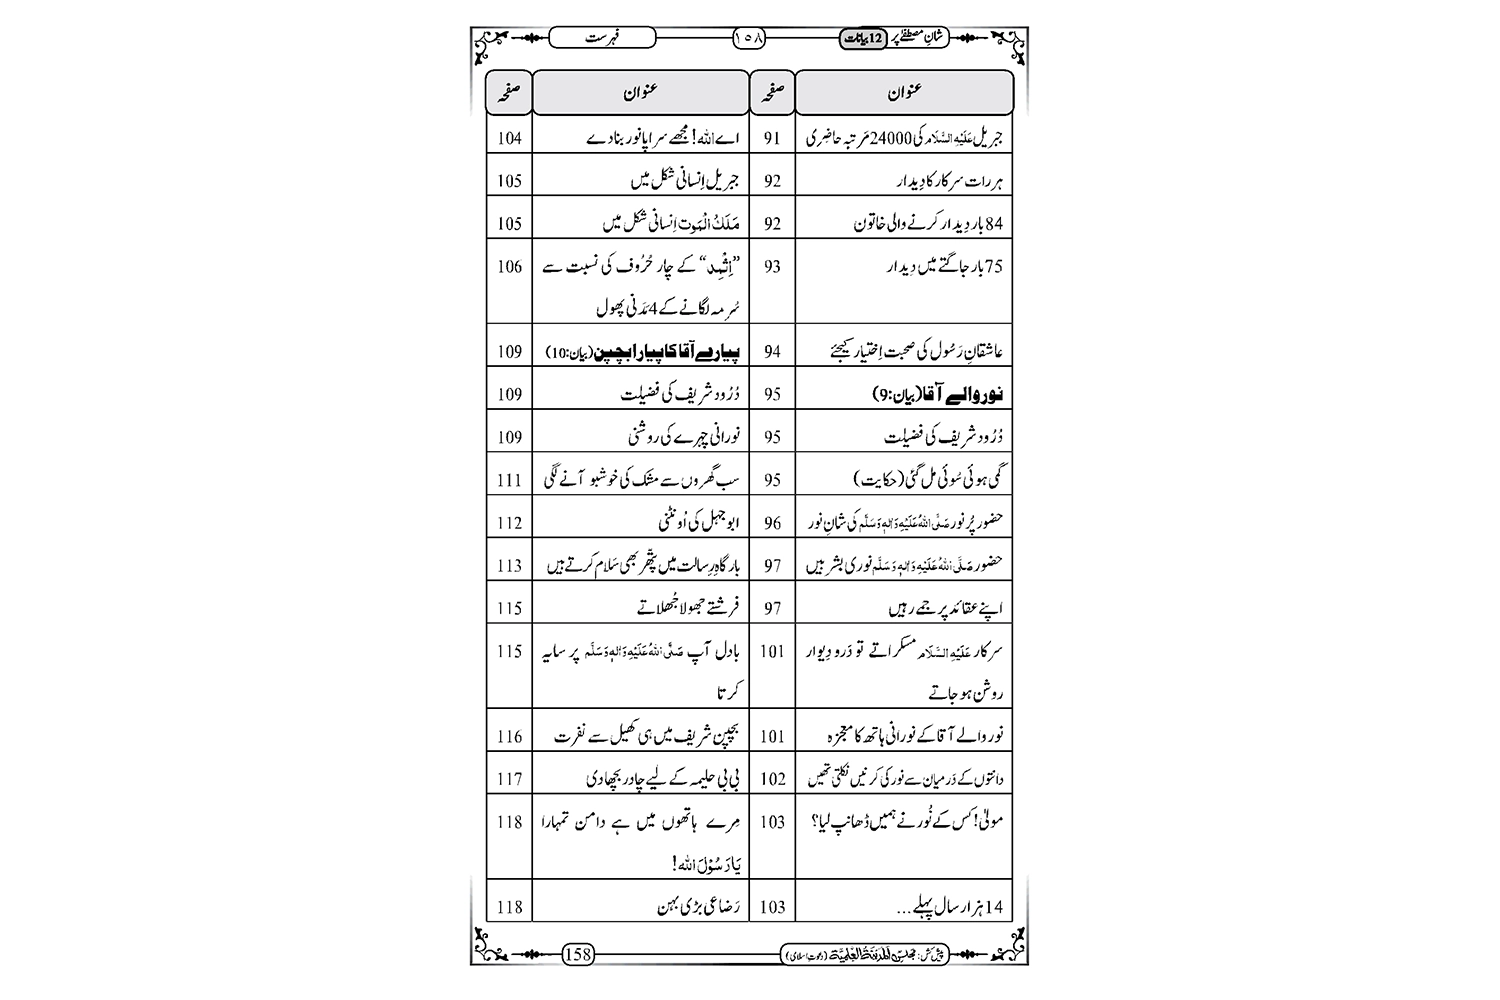 شانِ مصطفےٰ پر 12 بیانات ١٥٨ فہرست
عنوان صفحہ عنوان صفحہ
جبریل عَلَیْہِ السَّلَام کی 24000 مَرتبہ حاضِری 91 اے اللہ! مجھے سراپا نور بنا دے 104
ہر رات سرکار کا دِیدار 92 جبریل اِنسانی شکل میں 105
84 بار دِیدار کرنے والی خاتون 92 مَلَکُ الْمَوت اِنسانی شکل میں 105
75 بار جاگتے میں دِیدار 93 ”اِثْمِد“ کے چار حُرُوف کی نسبت سے 106
سُرمہ لگانے کے 4 مَدَنی پھول
عاشقانِ رَسُول کی صحبت اِختیار کیجئے 94 پیارے آقا کا پیارا بچپن (بیان:10) 109
نور والے آقا (بیان:9) 95 دُرُود شریف کی فضیلت 109
دُرُود شریف کی فضیلت 95 نورانی چہرے کی روشنی 109
گمی ہوئی سُوئی مل گئی (حکایت) 95 سب گھروں سے مشک کی خوشبو آنے لگی 111
حضور پُر نور صَلَّی اللہُ عَلَیْہِ وَاٰلِہٖ وَسَلَّم کی شانِ نور 96 ابو جہل کی اُونٹنی 112
حضور صَلَّی اللہُ عَلَیْہِ وَاٰلِہٖ وَسَلَّم نوری بشر ہیں 97 بارگاہِ رِسالت میں پتّھر بھی سَلام کرتے ہیں 113
اپنے عقائد پر جمے رہیں 97 فرشتے جھولا جُھلاتے 115
سرکار عَلَیْہِ السَّلَام مسکراتے تو دَر و دِیوار 101 بادل آپ صَلَّی اللہُ عَلَیْہِ وَاٰلِہٖ وَسَلَّم پر سایہ 115
روشن ہو جاتے کرتا
نور والے آقا کے نورانی ہاتھ کا معجزہ 101 بچپن شریف میں ہی کھیل سے نفرت 116
دانتوں کے دَرمیان سے نور کی کرنیں نکلتی تھیں 102 بی بی حلیمہ کے لیے چادر بچھا دی 117
مولیٰ! کس کے نُور نے ہمیں ڈھانپ لیا؟ 103 مِرے ہاتھوں میں ہے دامن تمہارا 118
یَا رَسُوْلَ اللہ!
14 ہزار سال پہلے... 103 رَضاعی بڑی بہن 118
پیش کش: مجلس اَلْمَدِیْنَۃُ الْعِلْمِیَّۃ (دعوتِ اسلامی) 158